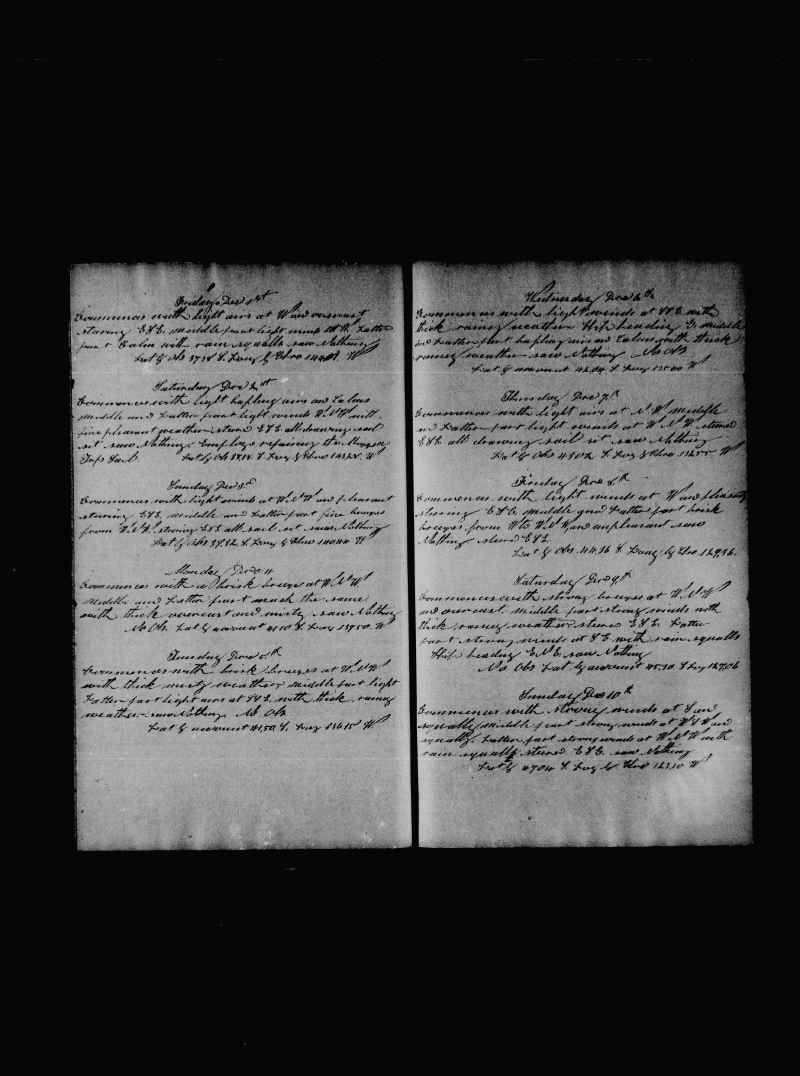 Friday Dec 1st
Commences with light airs at W and overcast
stearing E&E middle part light winds at the Latter
part Calm with rain squalls saw Nothing
Lat by Obs 37.38 S. Long by Chro W
Saturday Dec 2nd
Commences with light bafling airs and Calms
Middle and Latter part light winds W.N.W with
fine pleasant weather stered E&E all drawing sail
set saw Nothing. Employed repairing the Mizzen
Top Sail. Lat by Obs S. Long by Chro W
Sunday Dec 3rd
Commences with light winds at W.N.W and pleasant
stearing E&E, middle and Latter part fine breezes
from W.N.W. stearing E&E all sail set saw Nothing
Lat by Obs S. Long by Chro 140.44 W
Monday Dec 4
Commences with a brisk breeze at W.N.W
Middle and Latter part much the same
with thick overcast and misty saw Nothing
No Obs. Lat by account 41.10 S. Long 139.50 W
Tuesday Dec 5th
Commences with brisk breezes at W.N.W
with thick misty weather, middle part light
Latter part light airs at S&E with thick rainey
weather saw Nothing No Obs
Lat by account 41.50 S. Long 136.15 W
Wednesday Dec 6th
Commences with light winds at S&E with
thick rainey weather Ship heading E middle
and Latter part bafling airs and Calms with thick
rainey weather saw Nothing No Obs
Lat by account 42.04 S. Long 135.00 W
Thursday Dec 7th
Commences with light airs at N.W. middle
and Latter part light winds at W.N.W stered
E&E all drawing sail set saw Nothing
Lat by Obs 43.02 S. Long by Chro W
Friday Dec 8th
Commences with light winds at W and pleasant
stearing E&E middle and Latter part brisk
breezes from W to W.N.W, and unpleasant saw
Nothing stered E&E
Lat by Obs. 44.36 S. Long by Chro 129.36.
Saturday Dec 9th
Commences with strong breezes at W.N.W
and overcast. middle part strong winds with
thick rainey weather stered E&E. Latter
part strong winds at S&E with rain squalls
Ship heading E.N.E saw Nothing
No Obs Lat by account 45.30 S Long 127.06
Sunday Dec 10th
Commences with strong winds at S and
squally, middle part strong winds at W&W and
squally. Latter part strong winds at W.N.W with
rain squalls stered E&E saw Nothing
Lat by 47.04 S. Long by Chro 123.10 W